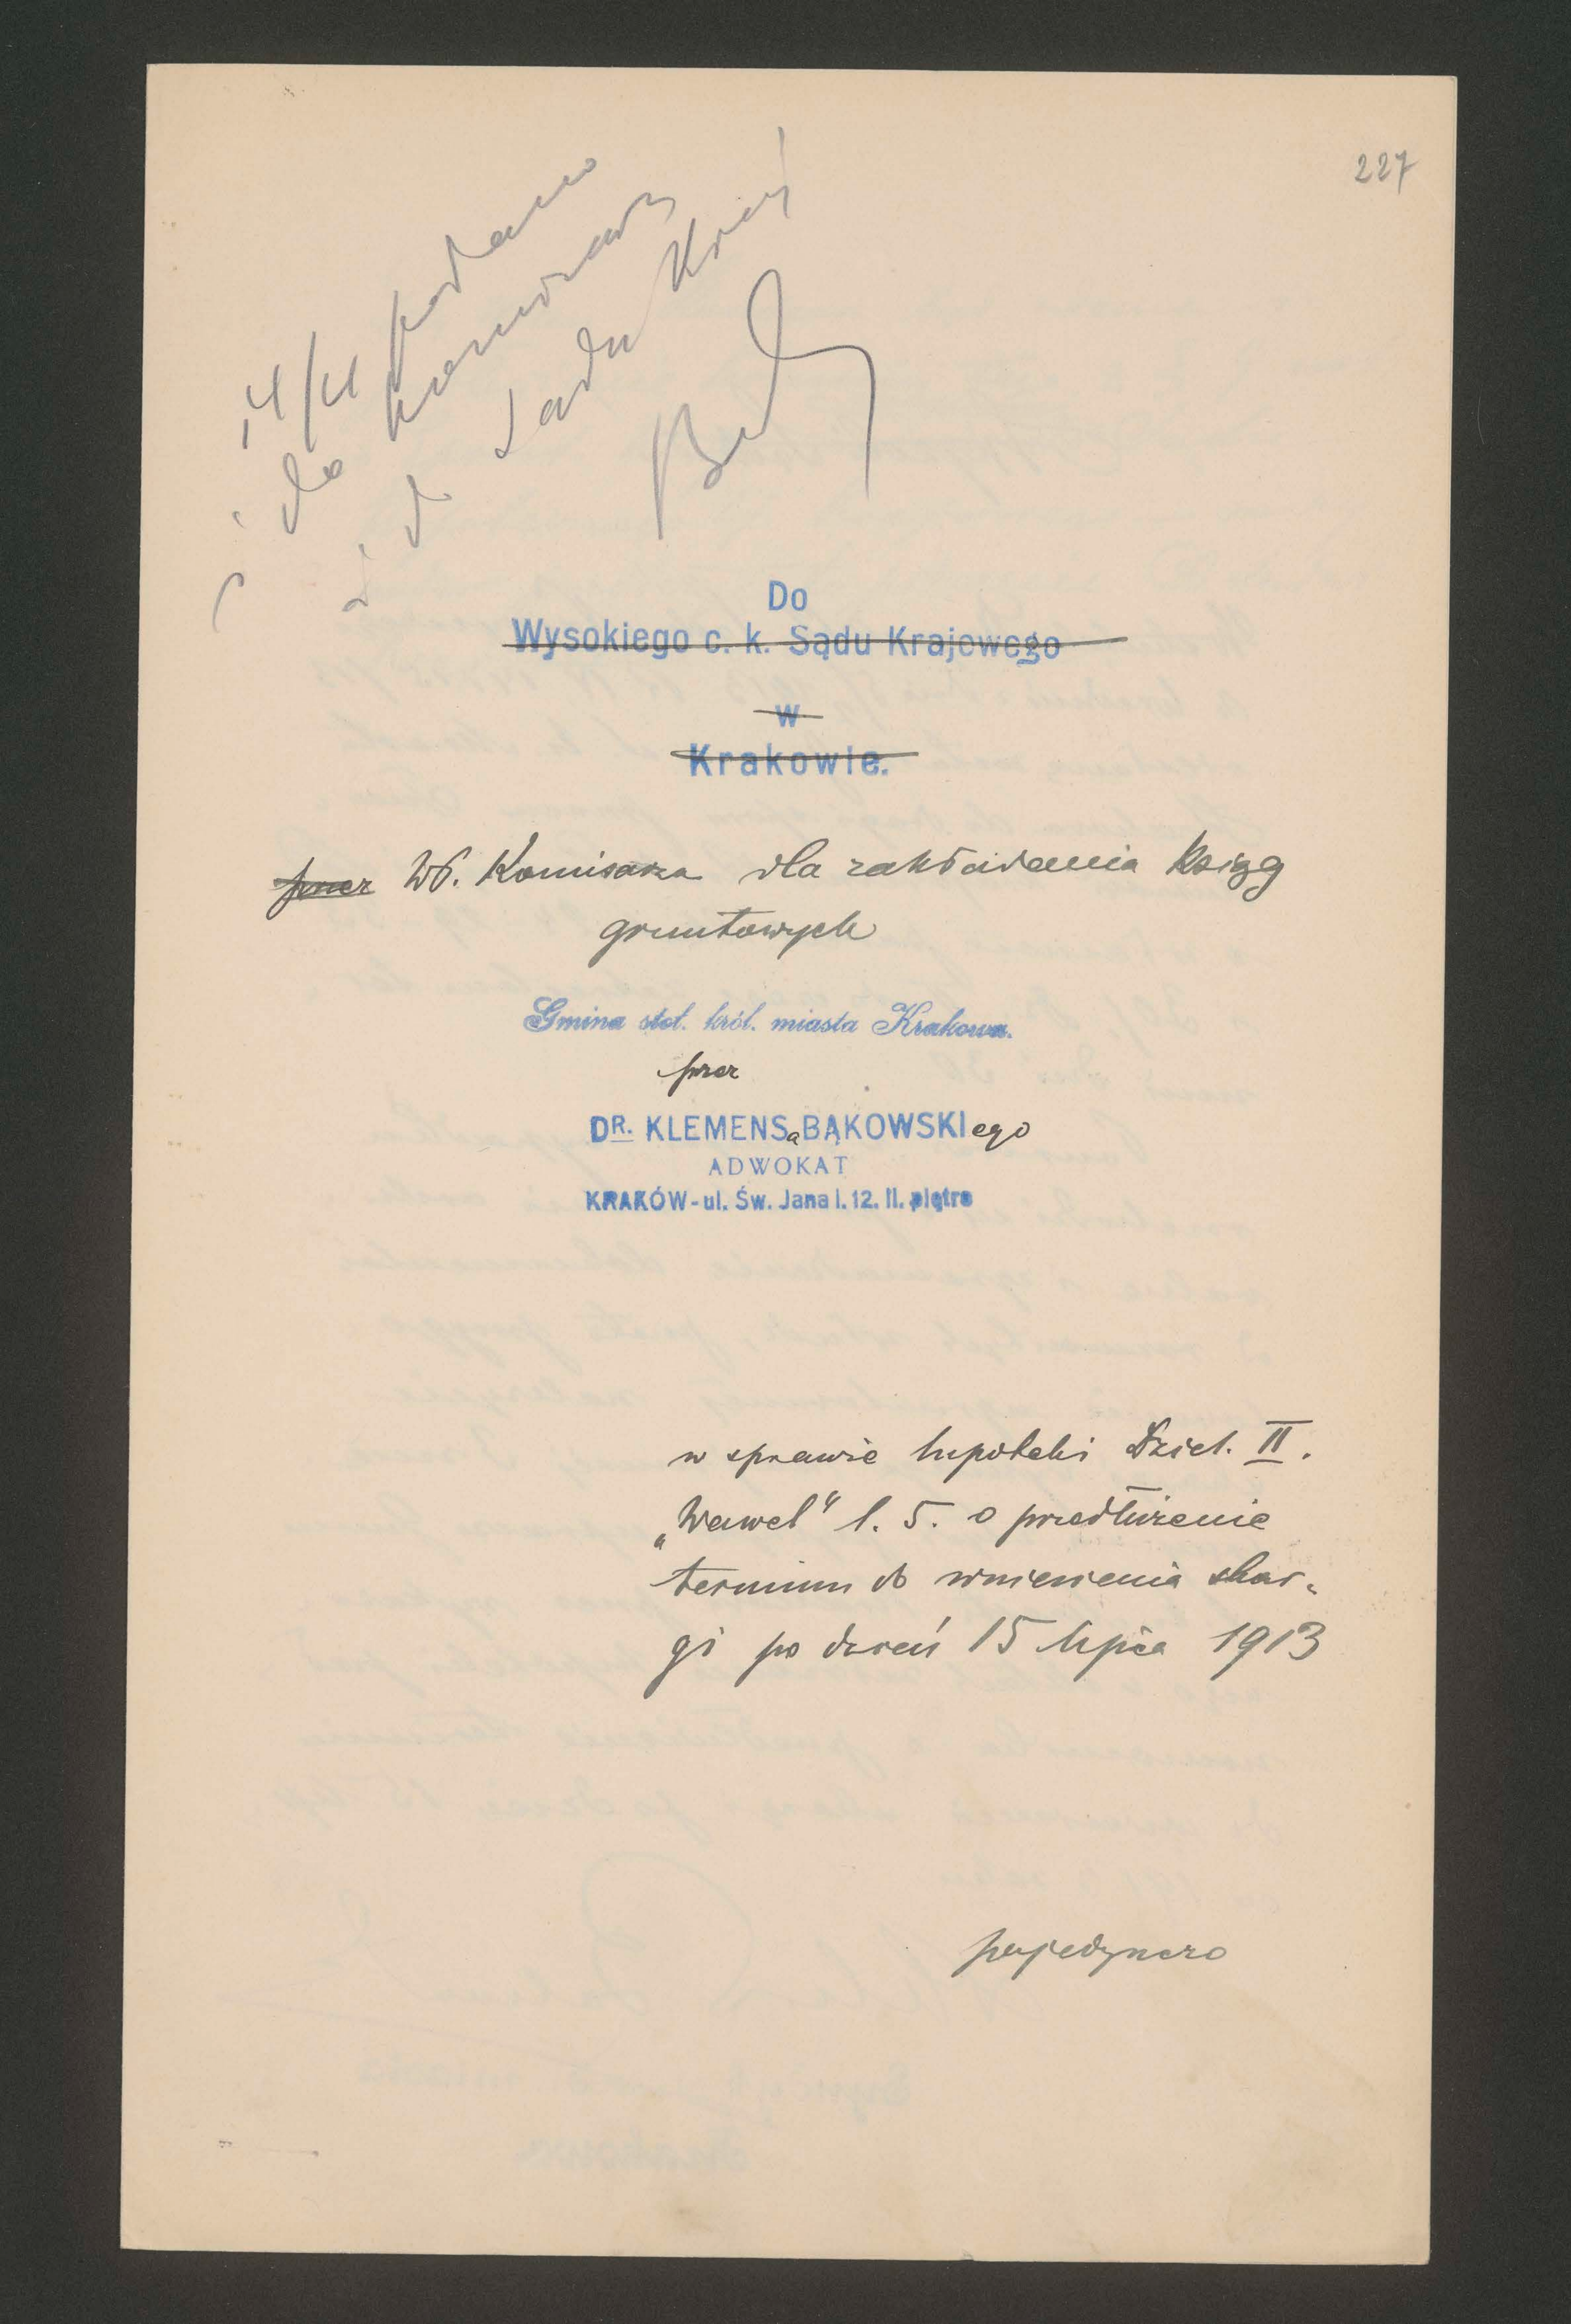 227
14/4 podano
do komisarza
i do Sądu Kraj
Do
Wysokiego c. k. Sądu Krajowego
w
Krakowie.
przez WP. Komisarza dla zakładania ksiąg
gruntowych
Gmina stoł. król. miasta Krakowa.
przez
DR. KLEMENSa BĄKOWSKIego
ADWOKAT
KRAKÓW - ul. Św. Jana l. 12. II. piętro
w sprawie hipoteki Dziel. II.
„Wawel" l. 5. o przedłużenie
terminu do wniesienia skar-
gi po dzień 15 lipca 1913
pojedynczo